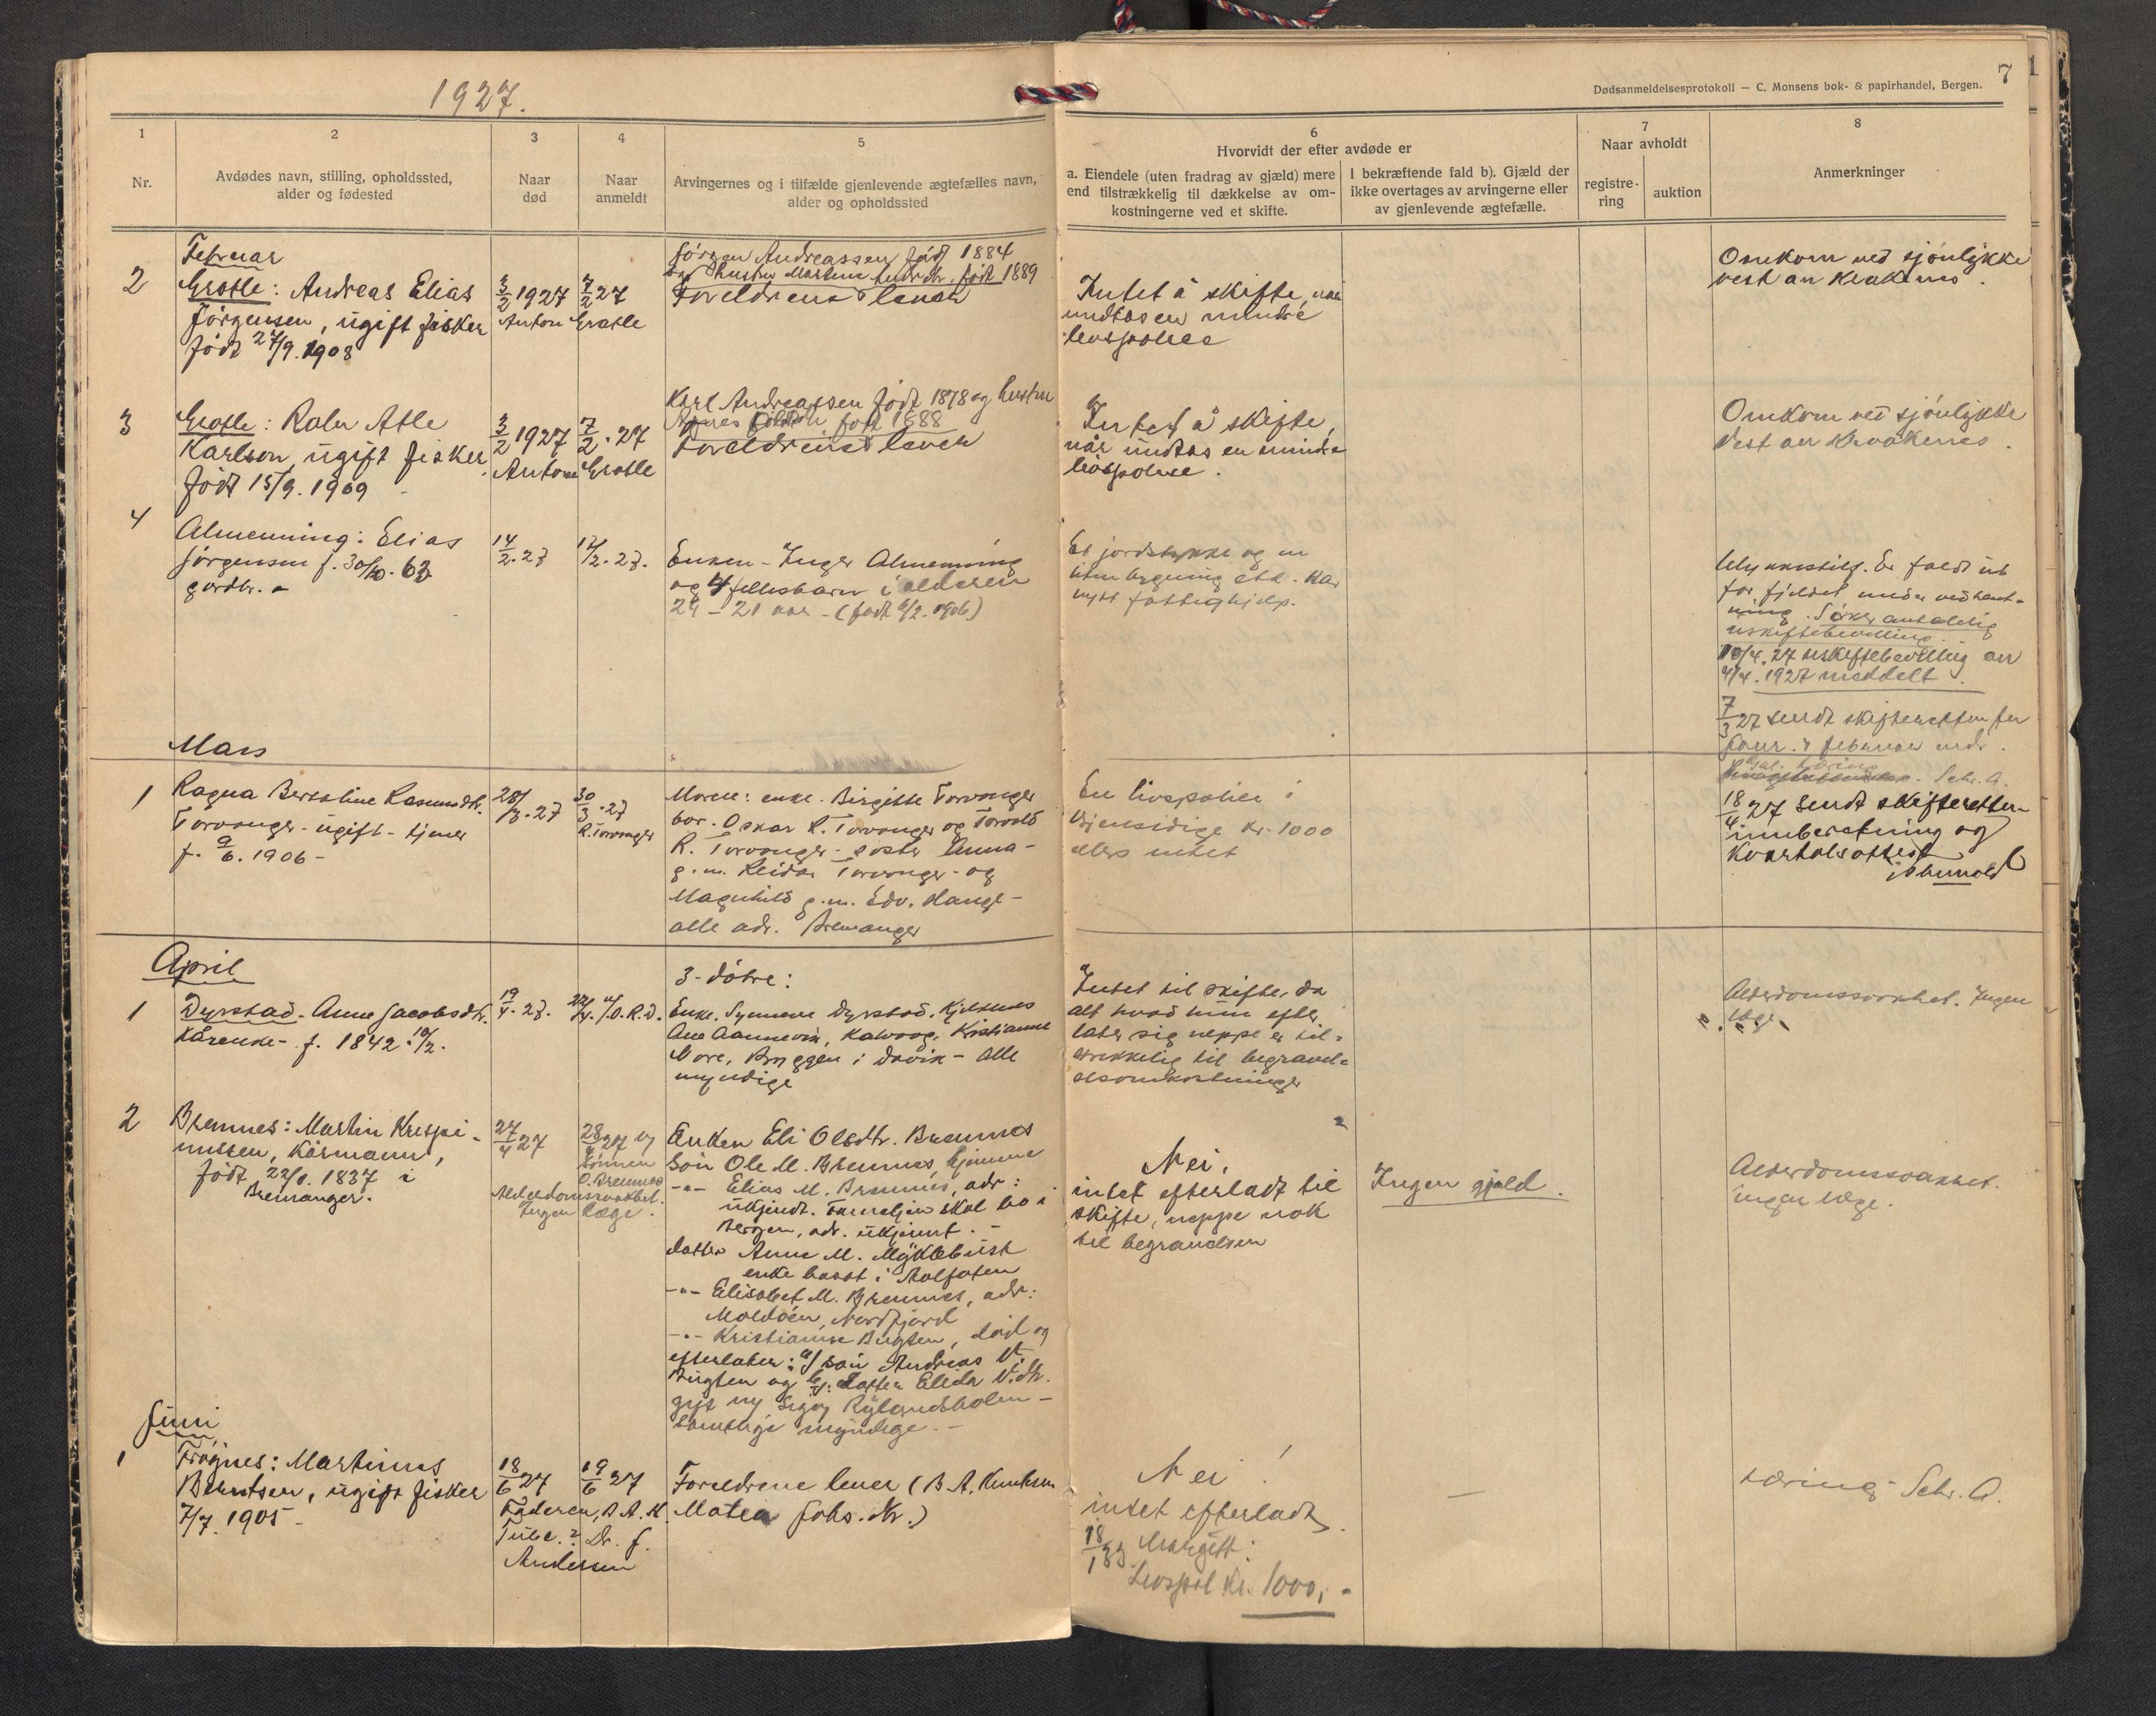 1927.
7
Dødsanmeldelsesprotokoll — C. Monsens bok- & papirhandel, Bergen.
1
Nr.
2
Avdødes navn, stilling, opholdssted,
alder og fødested
3
Naar
død
4
Naar
anmeldt
5
Arvingernes og i tilfælde gjenlevende ægtefælles navn,
alder og opholdssted
6
Hvorvidt der efter avdøde er
a. Eiendele (uten fradrag av gjæld) mere
end tilstrækkelig til dækkelse av om-
kostningerne ved et skifte.
I bekræftende fald b). Gjæld der
ikke overtages av arvingerne eller
av gjenlevende ægtefælle.
7
Naar avholdt
registre-
ring
auktion
8
Anmerkninger
Februar
2
Grotle: Andreas Elias
Jörgensen, ugift fisker
født 27/9. 1908
3/2 1927
7/2 27
Anton Grotle
Jörgen Andreassen født 1884
og hustru født 1889
Foreldrene lever
Intet å skifte, når
undtas en mindre
livspolice
Omkom ved sjöulykke
vest av Kråkenes.
3
Grotle: Atle
Karlson, ugift fisker
født 15/9. 1909
3/2 1927
7/2. 27
Anton Grotle
Karl Andreassen født 1878 og hustru
Agnes født 1888
Foreldrene lever
Intet å skifte,
når undtas en mindre
livspolice.
Omkom ved sjöulykke
vest av Kråkenes.
4
Almenning: Elias
Jörgensen f. 30/10. 63
gardbr.
14/2. 27
17/2. 27.
Enken - Inger Almenning
og 4 fellesbarn i alderen
24 - 21 aar - (født 6/2. 1906)
Et jordstykke og en
liten bygning
nytt fattighjelp.
Er faldt ut
for fjeldet under vedhent-
ning. Søker
uskiftebevilling.
10/4. 27 uskiftebevilling av
4/4. 1927 meddelt.
7/3 27 sendt skifteretten for
januar & februar
Mars
1
Ragna Bertoline Rasmusdtr.
Torvanger - ugift - tjener
f. 9/6. 1906 -
28/3. 27
30/3. 27
R. Torvanger
Moren: enke. Birgitte Torvanger
bor. Oskar R. Torvanger og Torvald
R. Torvanger - söster Anna -
g.m. Reidar Torvanger - og
Magnhild g.m. Edv. Hauge -
alle adr. Bremanger
En livspolice i
Gjensidige kr. 1000
ellers intet
Schr. A.
18/4 27 Sendt skifteretten
innberetning og
kvartalsattest
April
1
Dyrstad - Anne Jacobsdtr.
Kårenke - f. 1842 10/2.
19/4. 27.
22/4. O.R.D.
3 - döbre:
Enke. Synneve Dyrstad, Kjelsnes
Ane Aannevik, Kalvaag, Kristianne
Bryggen i Davik - Alle
myndige
Intet til skifte, da
alt hvad hun efter
later sig neppe er til-
strekkelig til begravel-
sesomkostninger
Alderdomssvakhet. Ingen
læge.
2
Bremnes: Martin Krispi-
nussen, Kårmann,
født 22/1. 1837 i
Bremanger.
27/4 27
28/4 27 ved
sönnen
O. Bremnes
Alderdomssvakhet.
Ingen læge.
Enken Eli Olsdtr. Bremnes
Sön Ole M. Bremnes, hjemme
-"- Elias M. Bremnes, adr:
ukjendt. Familjen skal bo i
Bergen, adr. ukjennt. -
datter Anne M. Myklebust
enke bosat i Aalfoten
-"- Elisabet M. Bremnes, adr:
Moldöen, Nordfjord
-"- Kristianne Bugten, död og
efterlater: a/ sön Andreas V.
Bugten og b/: datter Elida V.dtr.
gift Rylandsholm -
samtlige myndige. -
Nei.
intet efterladt til
skifte, neppe nok
til begravelsen
Ingen gjeld.
Alderdomssvakhet.
ingen læge.
Juni
1
Frøynes: Martinus
Berntsen, ugift fisker
7/7. 1905 -
18/6 27
19/6 27
Faderen, B. A. K.
Tube.? Dr. J.
Andersen
Foreldrene lever (B. A. Knutsen
Matea Johs. dtr.)
Nei!
intet efterladt.
18/1 33
Livspol kr. 1000,-
—
Schr. A.